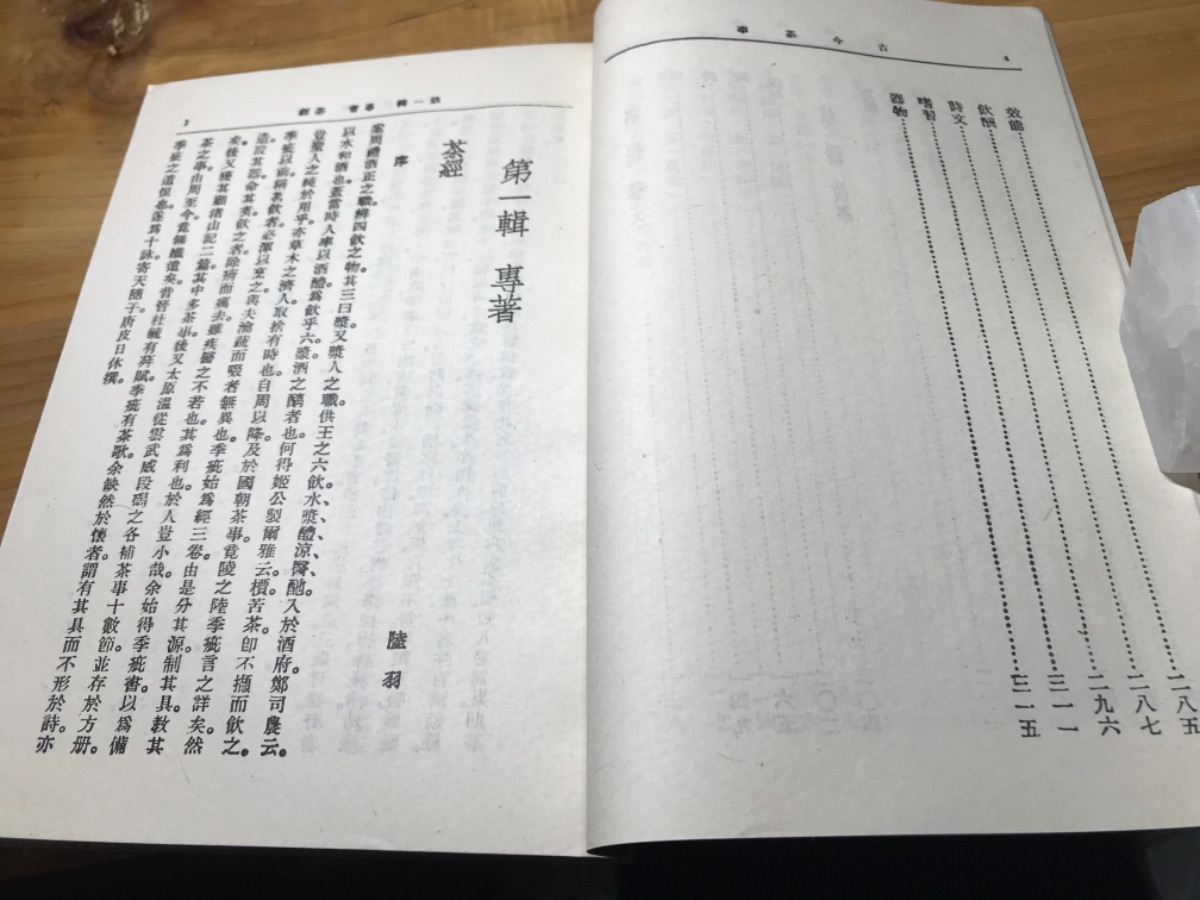 古今茶事
4
效能……二八五
飲酬……二八七
詩文……二九六
嗜習……三一一
器物……三一五
第一輯 專書 茶經
1
第一輯 專著
茶經
陸羽
序
案周禮酒正之職辨四飲之物其三曰漿又漿人之職供王之六飲水、漿、醴、涼、醫、酏。入於酒府。鄭司農云。
以水和酒也蓋當時人率以酒醴爲飲乎六漿酒之醨者也。何得姬公製爾雅云。檟苦茶卽不擷而飲之。
豈聖人之純於用乎亦草木之濟人取捨有時也自周以降及於國朝茶事竟陵之陸季疵言之詳矣。然
季疵以前稱茗飲者必渾以烹之與夫瀹蔬而啜者無異也。季疵始爲經三卷。由是分其源制其具教其
造設其器命其煮飲之者。除痟而癘去雖疾醫之不若也。其爲利也於人豈小哉余始得季疵書以爲備
矣。後又獲其顧渚山記二篇其中多茶事後又太原溫從雲武威段碣之各補茶事十數節並存於方册。
茶之事由周至今竟無纖遺矣昔晉杜毓有荈賦。季疵有茶歌。余缺然於懷者。謂有其具而不形於詩。亦
季疵之遺恨也。遂爲十詠寄天隨子唐皮日休撰。